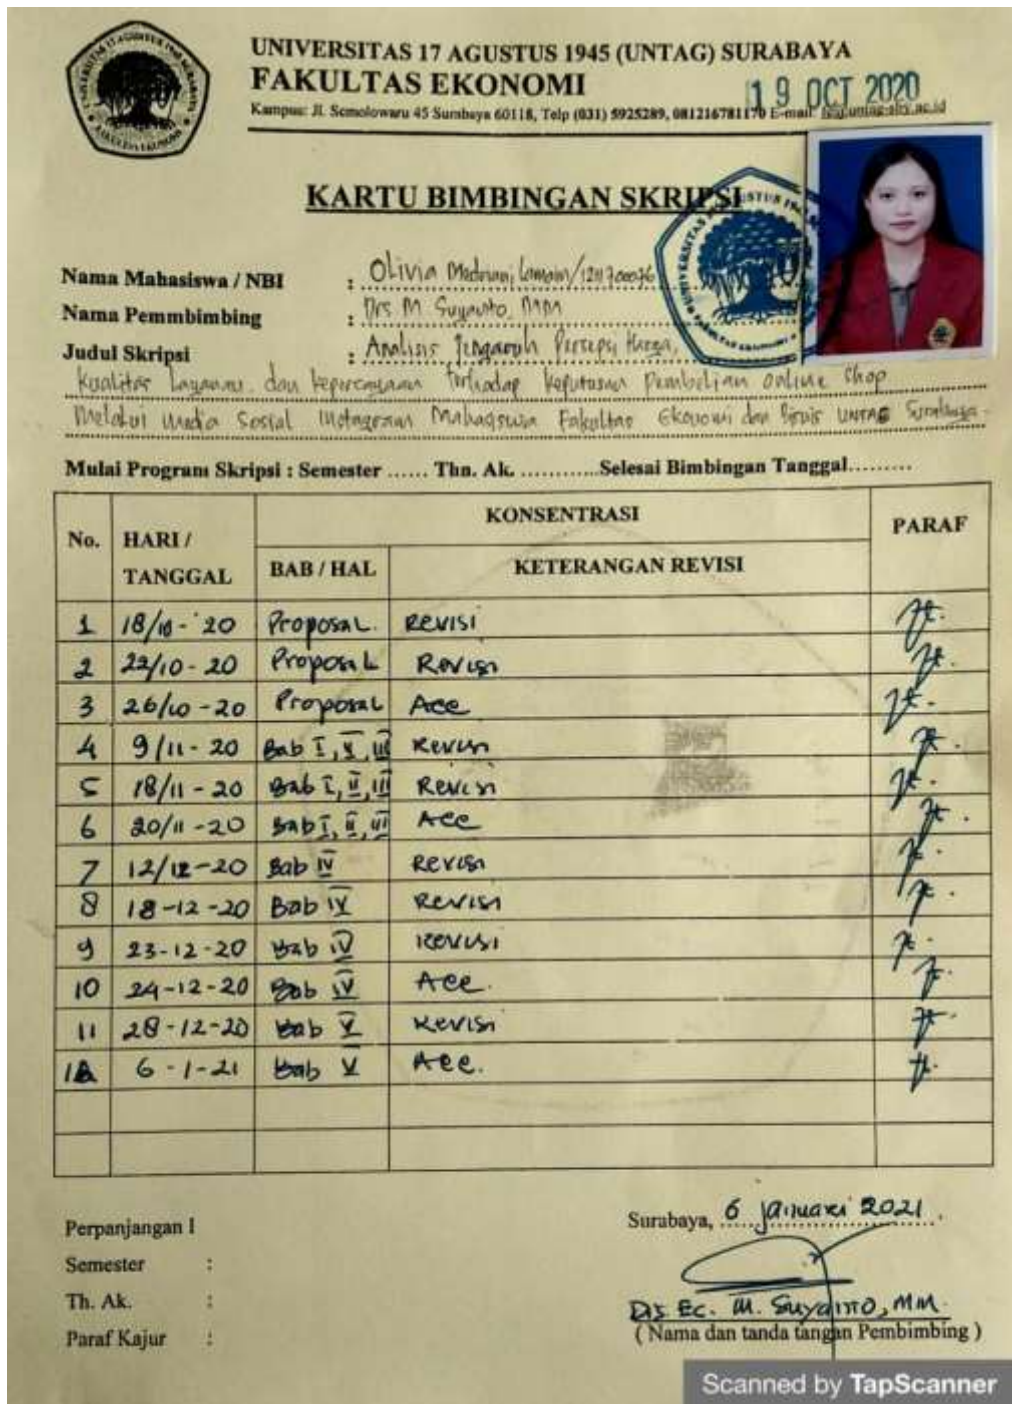 UNIVERSITAS 17 AGUSTUS 1945 (UNTAG) SURABAYA
FAKULTAS EKONOMI
19 OCT 2020
Kampus: Jl. Semolowaru 45 Surabaya 60118, Telp (031) 5925289, 081216781170 E-mail:
KARTU BIMBINGAN SKRIPSI
Nama Mahasiswa / NBI : Olivia
Nama Pemmbimbing : Drs M. Suyanto, MM
Judul Skripsi : Analisis Pengaruh Persepsi Harga,
Kualitas Layanan, dan kepercayaan Terhadap keputusan Pembelian online shop
Melalui Media Sosial Instagram Mahasiswa Fakultas Ekonomi dan Bisnis UNTAG Surabaya.
Mulai Program Skripsi : Semester ...... Thn. Ak. ............Selesai Bimbingan Tanggal.........
No. HARI / TANGGAL KONSENTRASI PARAF
BAB / HAL KETERANGAN REVISI
1 18/10-'20 Proposal. Revisi
2 22/10-20 Proposal Revisi
3 26/10-20 Proposal Acc
4 9/11-20 Bab I, II, III Revisi
5 18/11-20 Bab I, II, III Revisi
6 20/11-20 Bab I, II, III Acc
7 12/12-20 Bab IV Revisi
8 18-12-20 Bab IV Revisi
9 23-12-20 Bab IV Revisi
10 24-12-20 Bab IV Acc.
11 28-12-20 Bab V Revisi
12 6-1-21 Bab V Acc.
Perpanjangan I
Semester :
Th. Ak. :
Paraf Kajur :
Surabaya, 6 januari 2021.
Drs Ec. M. Suyanto, MM.
( Nama dan tanda tangan Pembimbing )
Scanned by TapScanner